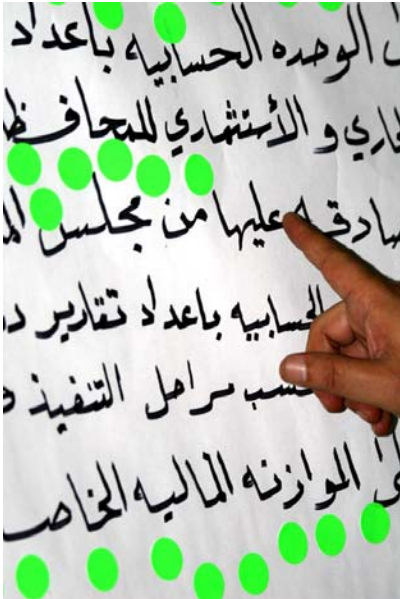 الوحده الحسابيه باعداد
جاري و الأستثماري للمحافظ
صادقه عليها من مجلس الم
الحسابيه باعداد تقارير
حسب مراحل التنفيذ
لى الموازنه الماليه الخاص